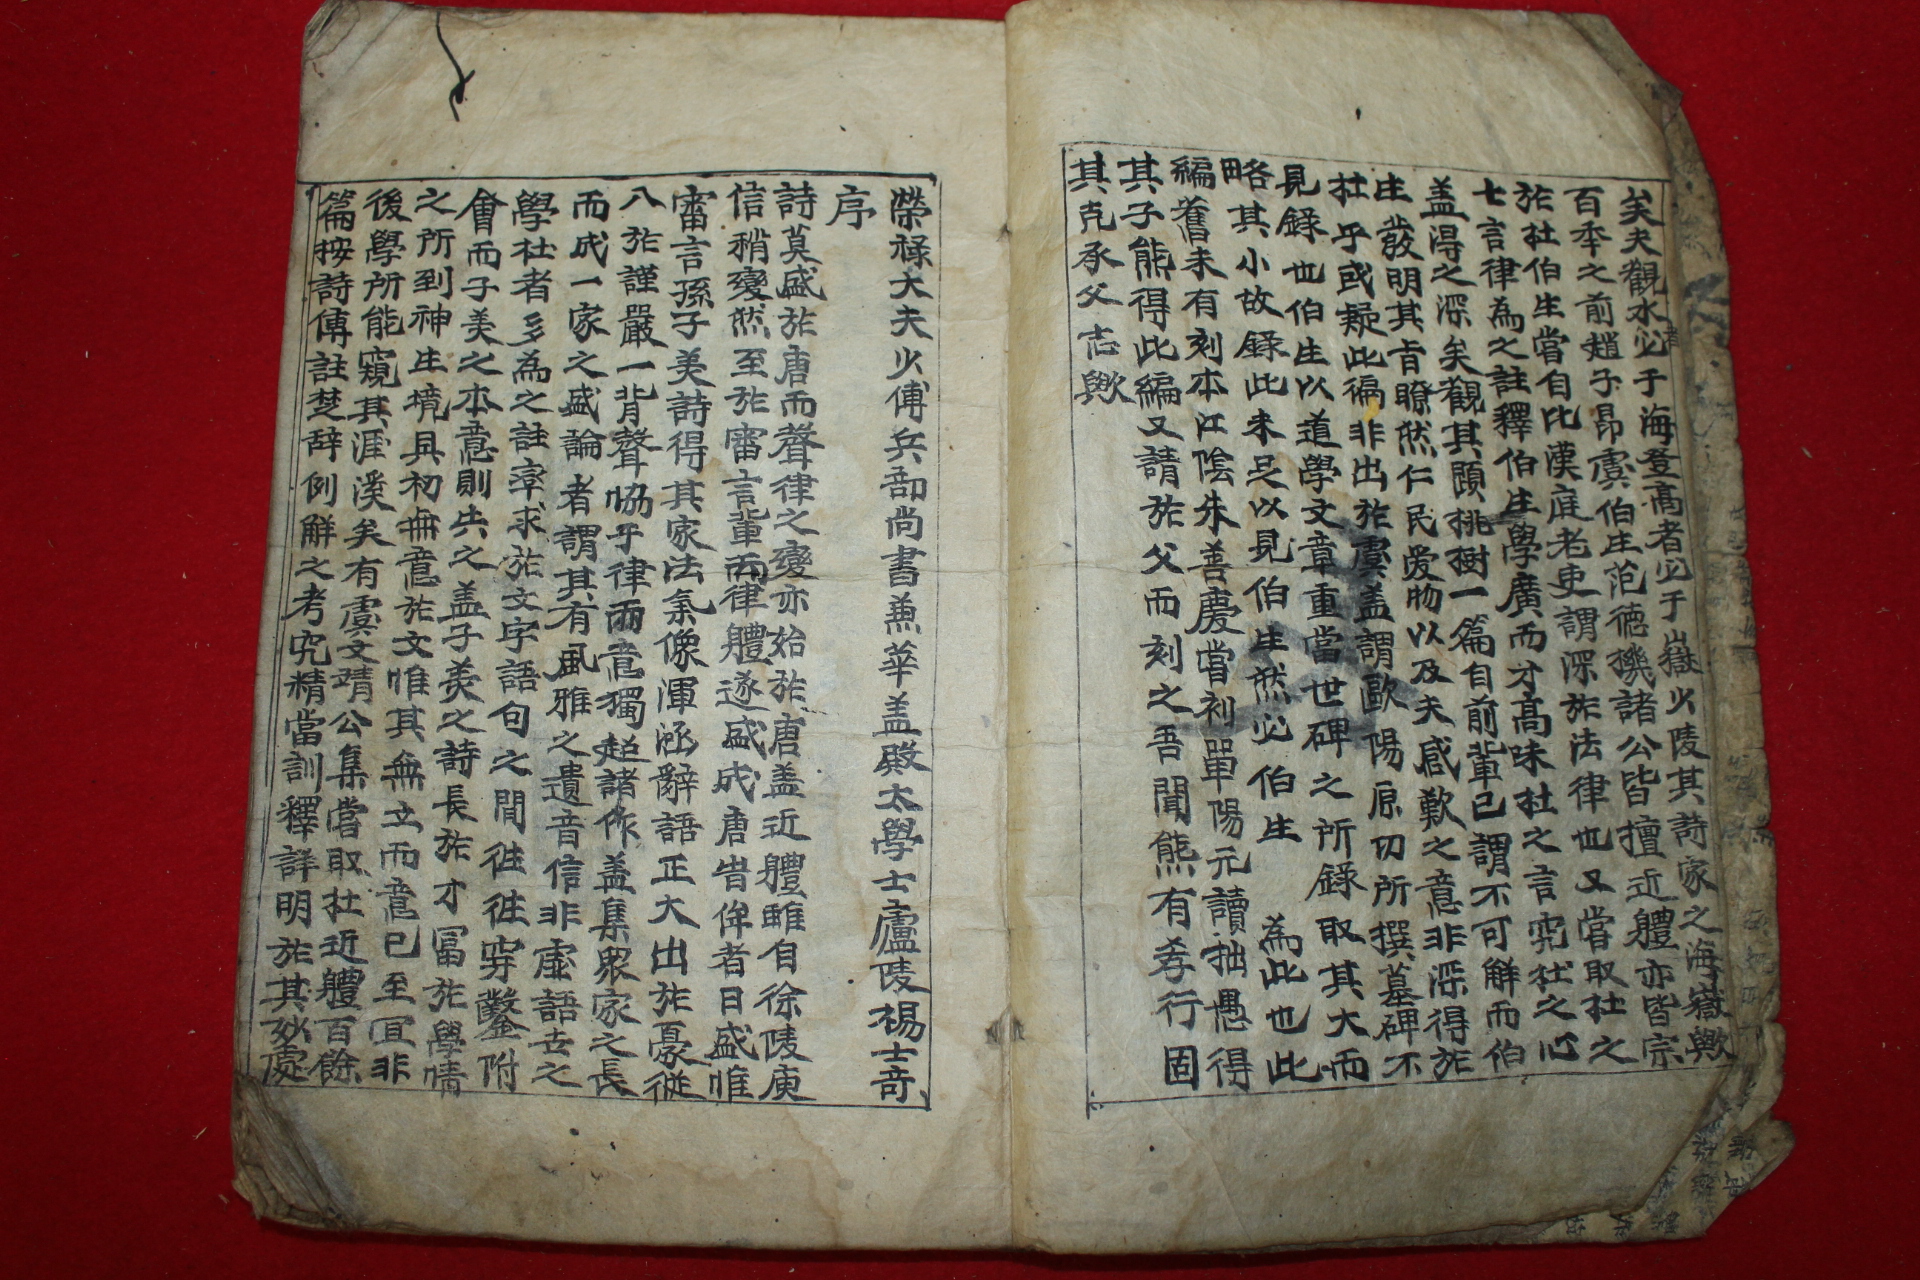 矣夫觀水必于海登高者必于嶽少陵其詩家之海嶽歟
百年之前趙子昻虞伯生范德機諸公皆擅近體亦皆宗
於杜伯生嘗自比漢庭老吏謂深於法律也又嘗取杜之
七言律為之註釋伯生學廣而才高味杜之言究杜之心
盖得之深矣觀其題桃樹一篇自前輩已謂不可觧而伯
生發明其旨瞭然仁民爱物以及夫感歎之意非深得於
杜乎或疑此徧非出於虞盖謂歐陽原功所撰墓碑不
見錄也伯生以道學文章重當世碑之所錄取其大而
略其小故錄此未足以見伯生然必伯生 為此也此
編舊未有刻本江隂朱善慶嘗刻單陽元讀拙愚得
其子能得此編又請於父而刻之吾聞熊有孝行固
其克承父志歟
榮禄大夫少傅兵部尚書兼華盖殿太學士廬陵楊士竒
序
詩莫盛於唐而聲律之變亦始於唐盖近體雖自徐陵庾
信稍變然至於審言輩而律體遂盛成唐皆倅者日盛惟
審言孫子美詩得其家法氣像渾涵辭語正大出於憂從
八於謹嚴一背聲恊乎律而意獨超諸作盖集眾家之長
而成一家之盛論者謂其有風雅之遺音信非虛語去之
學杜者多為之註率求於文字語句之間徃徃穿鑿附
會而子美之本意則失之盖子羙之詩長於才冨於學情
之所到神生境具初無意於文惟其無立而意已至冝非
後學所能窺其涯涘矣有虞文靖公集嘗取杜近體百餘
篇按詩傳註楚辞例觧之考究精當訓釋詳明於其妙處